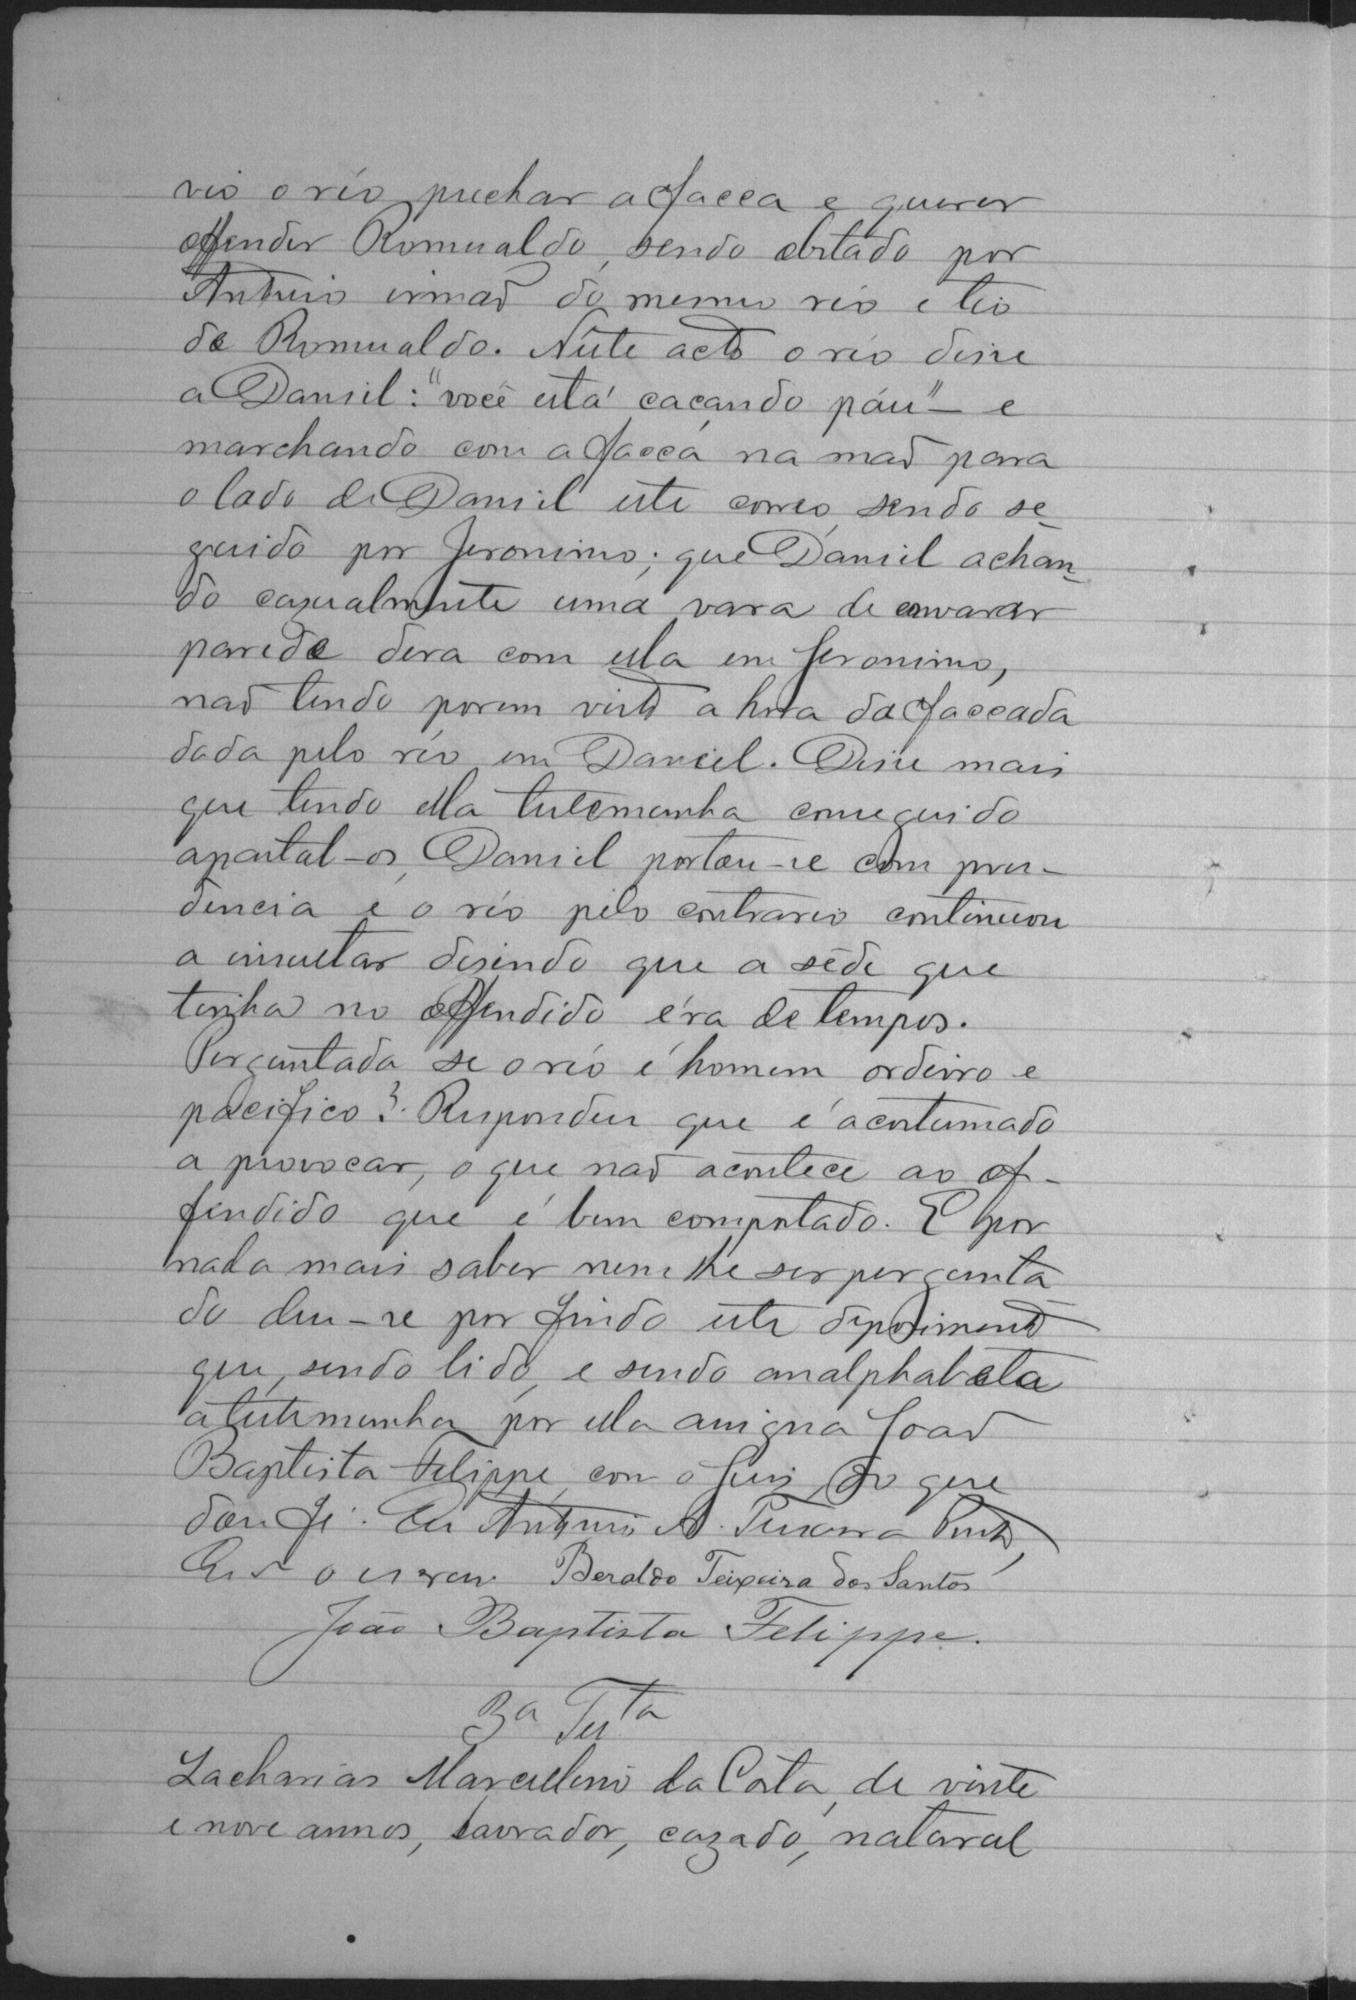 vio o réo puchar a facca e querer
offender Romualdo, sendo obstado por
Antonio irmaõ do mesmo réo e tio
de Romualdo. N'este acto o réo disse
a Daniel: "você está caçando páu" – e
marchando com a facca na maõ para
o lado de Daniel este correo, sendo se-
guido por Jeronimo; que Daniel achan-
do casualmente uma vara de envarar
parede dera com ella em Jeronimo,
naõ tendo porem visto a hora da faccada
dada pelo réo em Daniel. Disse mais
que tendo ella testemunha conseguido
apartal-os, Daniel portou-se com pru-
dencia e o réo pelo contrario continuou
a insultar disendo que a sêde que
tinha no offendido éra de tempos.
Perguntada se o réo é homem ordeiro e
pacifico? Respondeu que é acostumado
a provocar, o que naõ acontece ao of-
fendido que é bem comportado. E por
nada mais saber nem lhe ser pergunta
do deu-se por findo este depoimento
que, sendo lido, e sendo analphabeta
a testemunha por ella assigna Joaõ
Baptista Felippe com o Juis, do que
dou fé. Eu Antonio A. Teixeira Pinto,
Esc.am o escrevi. Beraldo Teixeira dos Santos
João Baptista Felippe.
3a Testa
Zacharias Marcellino da Costa, de vinte
e nove annos, lavrador, cazado, natural